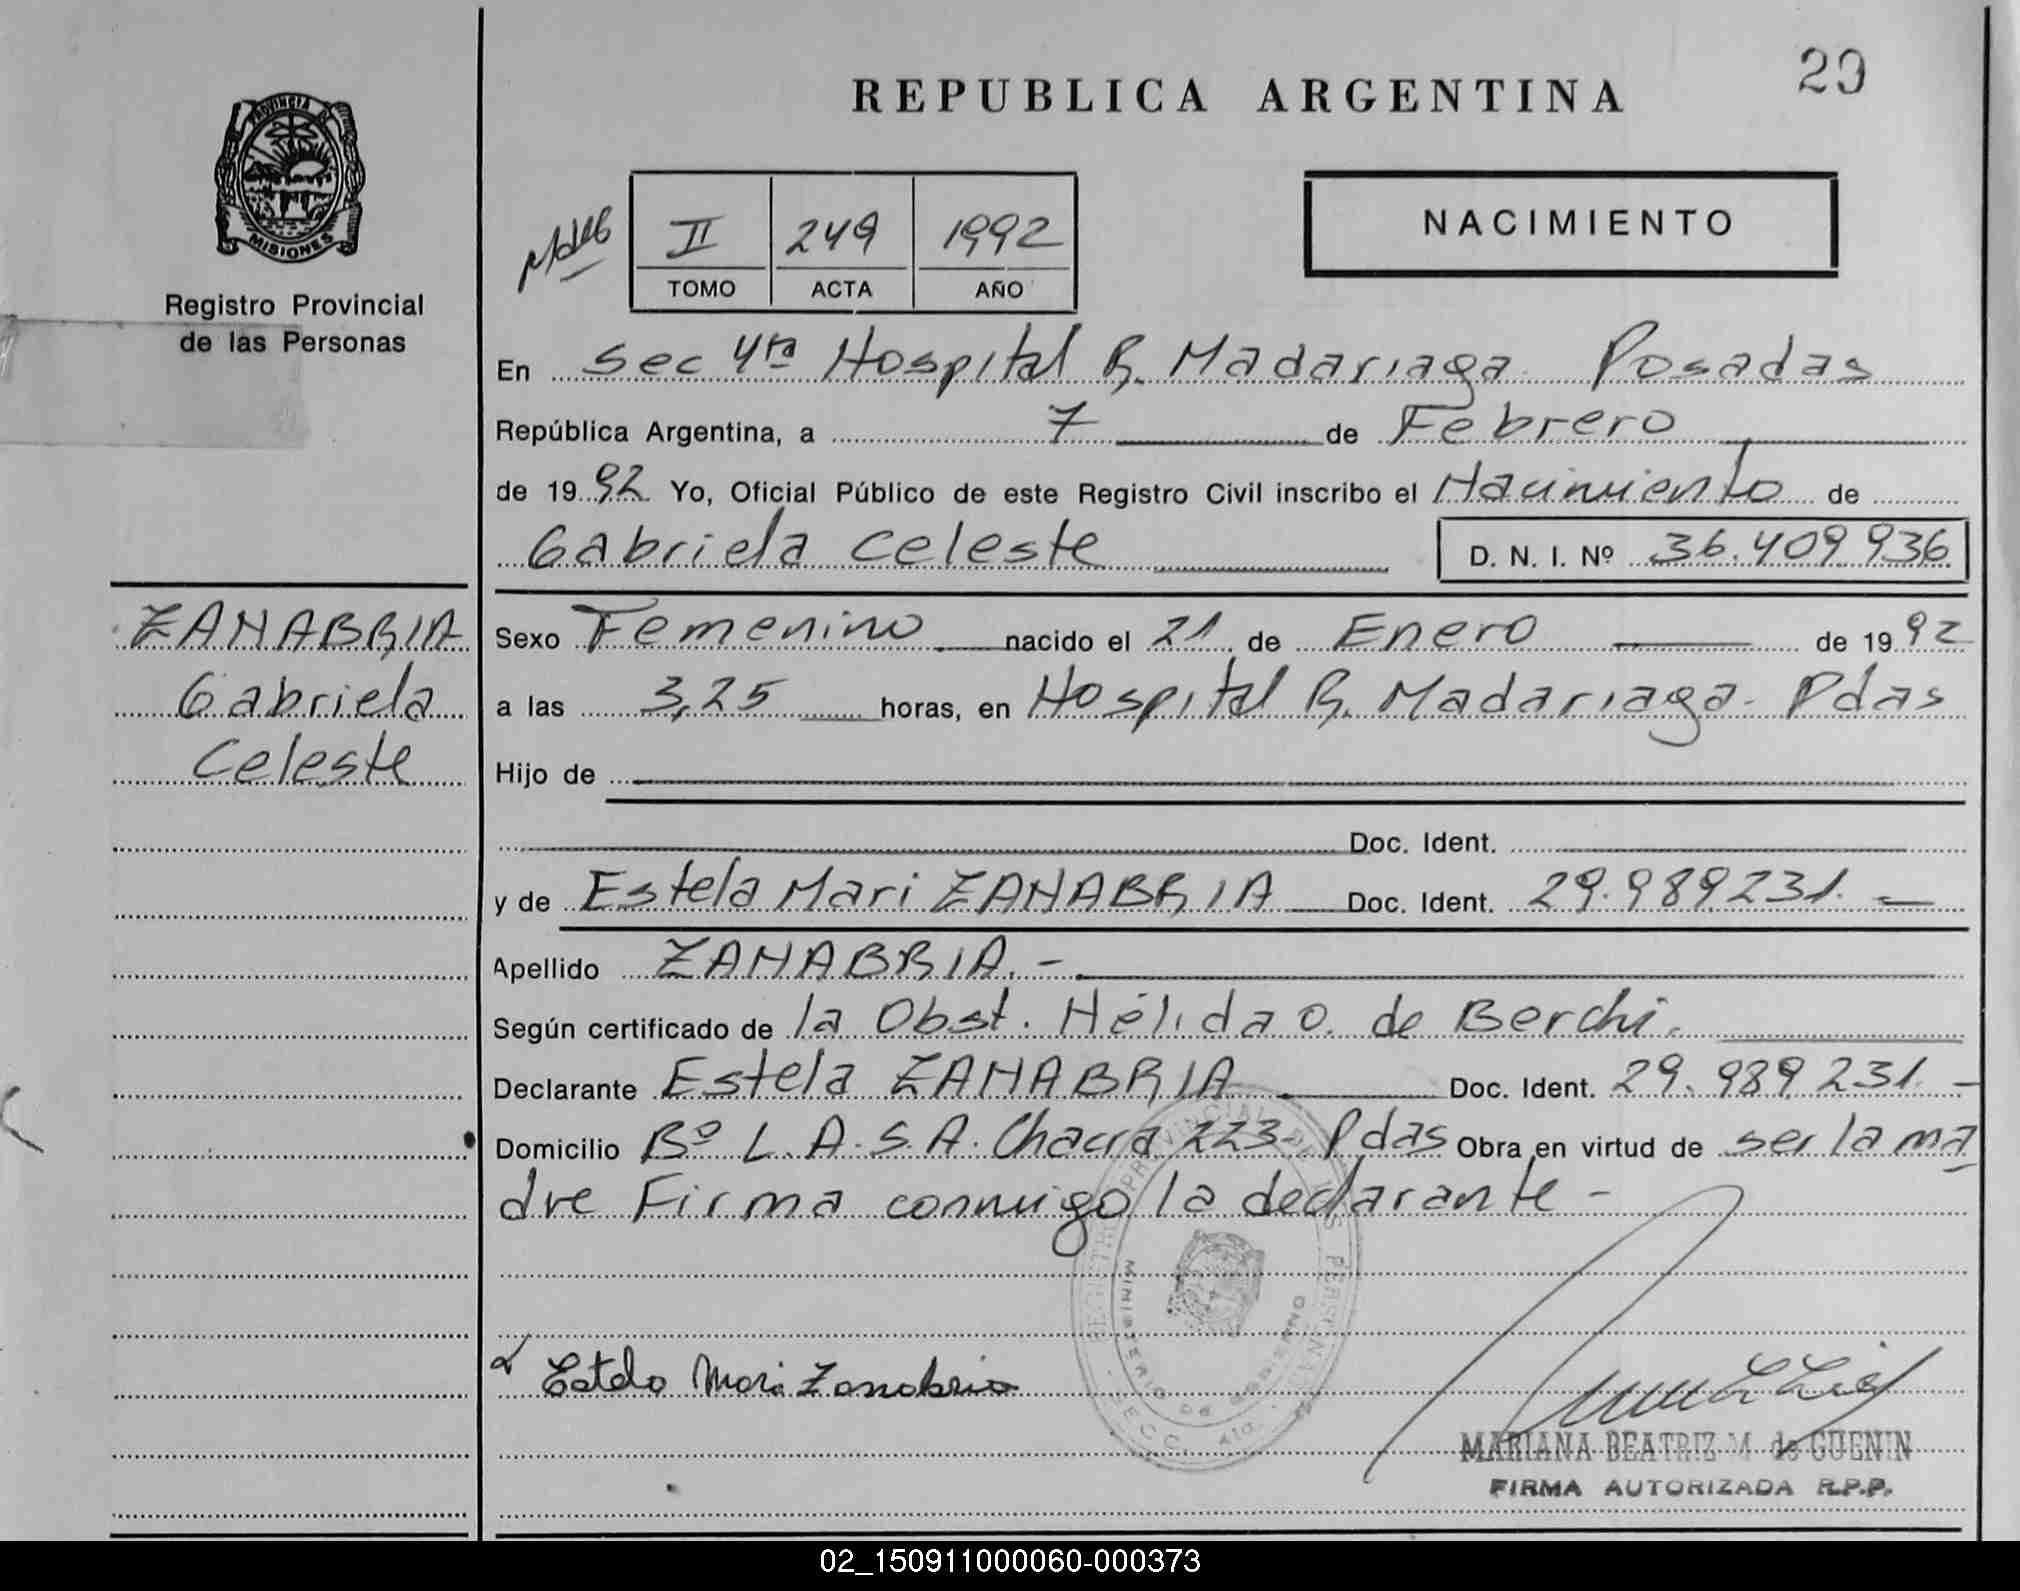 29
REPUBLICA ARGENTINA
PROVINCIA DE
MISIONES
Registro Provincial
de las Personas
II 249 1992
TOMO ACTA AÑO
NACIMIENTO
En Sec 4ta Hospital R. Madariaga Posadas
República Argentina, a 7 de Febrero
de 1992 Yo, Oficial Público de este Registro Civil inscribo el Nacimiento de
Gabriela Celeste D. N. I. Nº 36.409.936
ZANABRIA
Gabriela
Celeste
Sexo Femenino nacido el 21 de Enero de 1992
a las 3,25 horas, en Hospital R. Madariaga - Pdas
Hijo de
Doc. Ident.
y de Estela Mari ZANABRIA Doc. Ident. 29.989.231.-
Apellido ZANABRIA.-
Según certificado de la Obst. Hélida O. de Berchi.
Declarante Estela ZANABRIA Doc. Ident. 29.989.231.-
Domicilio Bº L.A.S.A. Chacra 223- Pdas Obra en virtud de ser la ma
dre Firma conmigo la declarante -
REGISTRO PROVINCIAL DE LAS PERSONAS
MINISTERIO DE GOBIERNO
SECC. 4ta.
Estela Mari Zanabria
MARIANA BEATRIZ M. de GUENIN
FIRMA AUTORIZADA R.P.P.
02_150911000060-000373